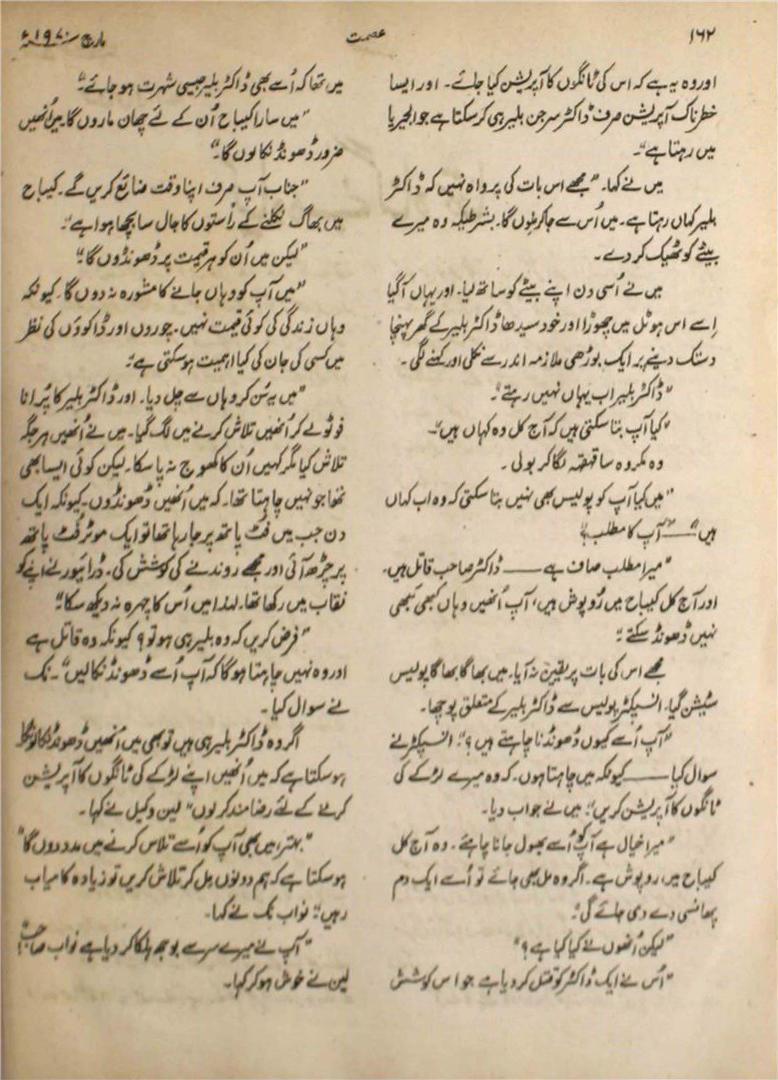 ۱۶۲
عصمت
مارچ سنہ ۱۹۷۰ء
اور وہ یہ ہے کہ اس کی ٹانگوں کا آپریشن کیا جائے۔ اور ایسا
خطرناک آپریشن صرف ڈاکٹر سرجن بلیر ہی کر سکتا ہے جو الجیریا
میں رہتا ہے"۔
میں نے کہا۔ "مجھے اس بات کی پرواہ نہیں کہ ڈاکٹر
بلیر کہاں رہتا ہے۔ میں اُس سے جا کر ملوں گا۔ بشرطیکہ وہ میرے
بیٹے کو ٹھیک کر دے۔
میں نے اُسی دن اپنے بیٹے کو ساتھ لیا۔ اور یہاں آگیا
اِسے اس ہوٹل میں چھوڑا اور خود سیدھا ڈاکٹر بلیر کے گھر پہنچا
دستک دینے پر ایک بوڑھی ملازمہ اندر سے نکلی اور کہنے لگی۔
"ڈاکٹر بلیر اب یہاں نہیں رہتے"۔
"کیا آپ بتا سکتی ہیں کہ آج کل وہ کہاں ہیں"۔
وہ مکروہ سا قہقہہ لگا کر بولی۔
"میں کیا آپ کو پولیس بھی نہیں بتا سکتی کہ وہ اب کہاں
ہیں" —— "آپ کا مطلب؟"
"میرا مطلب صاف ہے —— ڈاکٹر صاحب قاتل ہیں۔
اور آج کل کیباح میں رُوپوش ہیں، آپ اُنھیں وہاں کبھی بھی
نہیں ڈھونڈ سکتے"۔
مجھے اس کی بات پر یقین نہ آیا۔ میں بھاگا بھاگا پولیس
سٹیشن گیا۔ انسپکٹر پولیس سے ڈاکٹر بلیر کے متعلق پوچھا۔
"آپ اُسے کیوں ڈھونڈنا چاہتے ہیں؟" انسپکٹر نے
سوال کیا —— کیونکہ میں چاہتا ہوں۔ کہ وہ میرے لڑکے کی
ٹانگوں کا آپریشن کریں"۔ میں نے جواب دیا۔
"میرا خیال ہے آپ کو اُسے بھول جانا چاہئے۔ وہ آج کل
کیباح میں روپوش ہے۔ اگر وہ مل بھی جائے تو اُسے ایک دم
پھانسی دے دی جائے گی"۔
"لیکن اُنھوں نے کیا کیا ہے؟"
"اُس نے ایک ڈاکٹر کو قتل کر دیا ہے جو اس کوشش
میں تھا کہ اُسے بھی ڈاکٹر بلیر جیسی شہرت ہو جائے"۔
"میں سارا کیباح اُن کے لئے چھان ماروں گا۔ میں اُنھیں
ضرور ڈھونڈ نکالوں گا"۔
"جناب آپ صرف اپنا وقت ضائع کریں گے۔ کیباح
میں بھاگ نکلنے کے راستوں کا جال سا بچھا ہوا ہے"۔
"لیکن میں اُن کو ہر قیمت پر ڈھونڈوں گا"۔
"میں آپ کو وہاں جانے کا مشورہ نہ دوں گا۔ کیونکہ
وہاں زندگی کی کوئی قیمت نہیں۔ چوروں اور ڈاکوؤں کی نظر
میں کسی کی جان کی کیا اہمیت ہو سکتی ہے"۔
"میں یہ سُن کر وہاں سے چل دیا۔ اور ڈاکٹر بلیر کا پُرانا
فوٹو لے کر اُنھیں تلاش کرنے میں لگ گیا۔ میں نے اُنھیں ہر جگہ
تلاش کیا مگر کہیں اُن کا کھوج نہ پا سکا۔ لیکن کوئی ایسا بھی
تھا جو نہیں چاہتا تھا۔ کہ میں اُنھیں ڈھونڈوں۔ کیونکہ ایک
دن جب میں فٹ پاتھ پر جا رہا تھا تو ایک موٹر فُٹ پاتھ
پر چڑھ آئی اور مجھے روندنے کی کوشش کی۔ ڈرائیور نے اپنے کو
نقاب میں رکھا تھا۔ لہٰذا میں اُس کا چہرہ نہ دیکھ سکا"۔
"فرض کریں کہ وہ بلیر ہی ہو تو؟ کیونکہ وہ قاتل ہے
اور وہ نہیں چاہتا ہو گا کہ آپ اُسے ڈھونڈ نکالیں"۔ نک
نے سوال کیا۔
اگر وہ ڈاکٹر بلیر ہی ہیں تو بھی میں اُنھیں ڈھونڈ نکالونگا
ہو سکتا ہے کہ میں اُنھیں اپنے لڑکے کی ٹانگوں کا آپریشن
کرنے کے لئے رضامند کر لوں" لین وکیل نے کہا۔
"بہتر، میں بھی آپ کو اُسے تلاس کرنے میں مدد دوں گا"
ہو سکتا ہے کہ ہم دونوں مل کر تلاش کریں تو زیادہ کامیاب
رہیں"۔ نواب نک نے کہا۔
"آپ نے میرے سر سے بوجھ ہلکا کر دیا ہے نواب صاحب"!
لین نے خوش ہو کر کہا۔